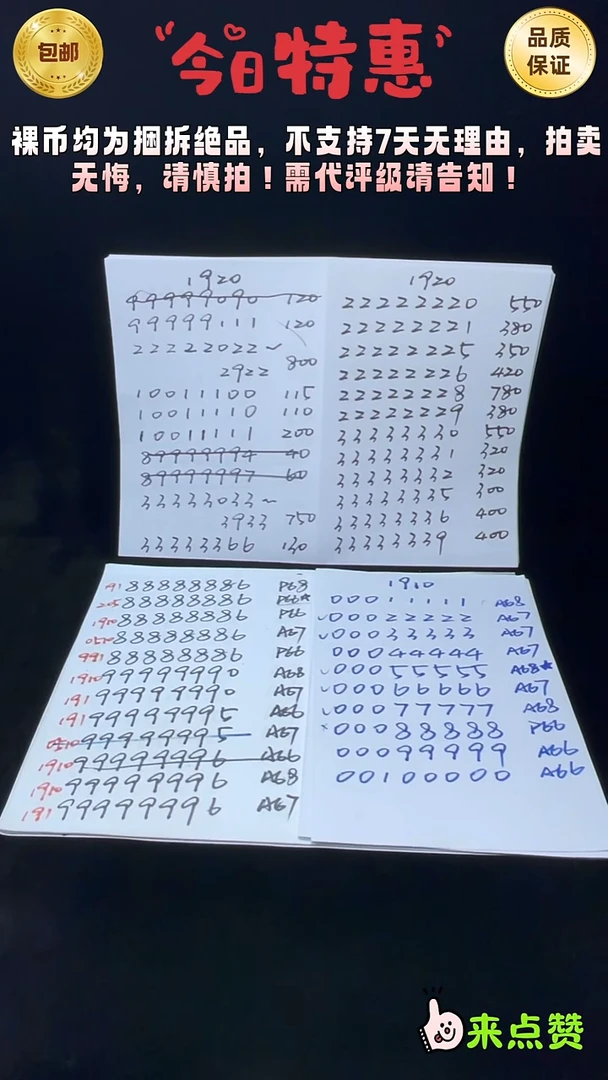 包邮
今日特惠
品质
保证
裸币均为捆拆绝品，不支持7天无理由，拍卖
无悔，请慎拍！需代评级请告知！
1920
99999090 120
99999111 120
22222022~
2922 800
10011100 115
10011110 110
10011111 200
89999994 40
89999997 60
33333033~
3933 750
33333366 130
1920
22222220 550
22222221 380
22222225 350
22222226 420
22222228 780
22222229 380
33333330 550
33333331 320
33333332 320
33333335 300
33333336 400
33333339 400
191 88888886 P68
205 88888886 P66★
1910 88888886 P66
0510 88888886 A67
991 88888886 P66
1910 99999990 A68
191 99999990 A67
191 99999995 A66
0510 99999995 A67
1910 99999996 A66
1910 99999996 A68
191 99999996 A67
1910
00011111 A68
✓00022222 A67
✓00033333 A67
00044444 A67
✓00055555 A68★
✓00066666 A67
✓00077777 A68
×00088888 P66
00099999 A66
00100000 A66
来点赞